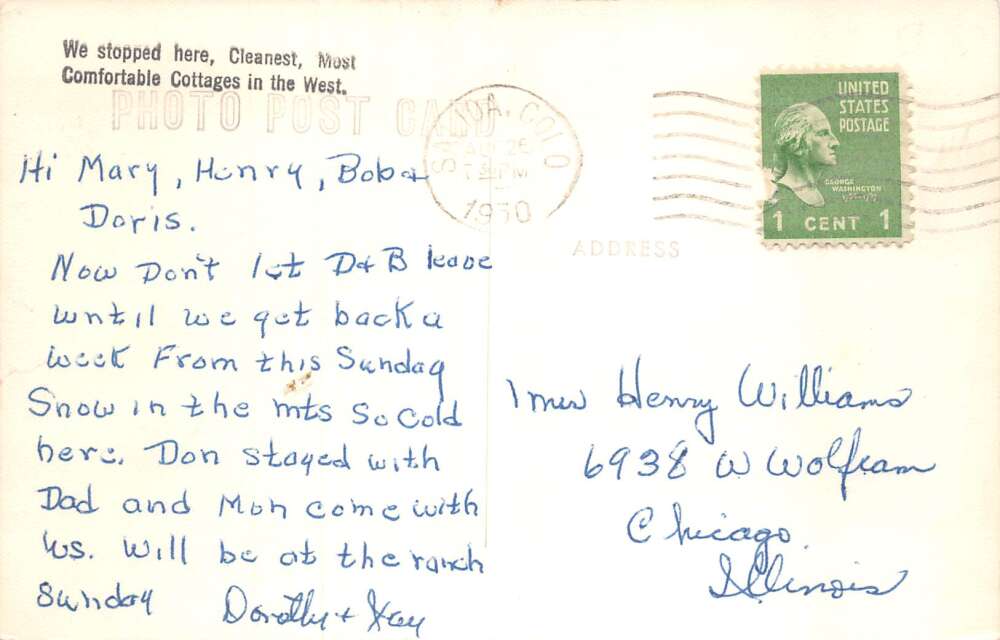 We stopped here, Cleanest, Most
Comfortable Cottages in the West.
PHOTO POST CARD
COLO
25
PM
1950
UNITED
STATES
POSTAGE
GEORGE
WASHINGTON
1 CENT 1
ADDRESS
Hi Mary, Henry, Bob &
Doris.
Now Don't let D & B leave
until we get back a
week From this Sunday
Snow in the mts So Cold
here. Don stayed with
Dad and Mon come with
us. Will be at the ranch
Sunday Dorothy + Kay
Henry Williams
6938 W Wolfram
Chicago
Illinois